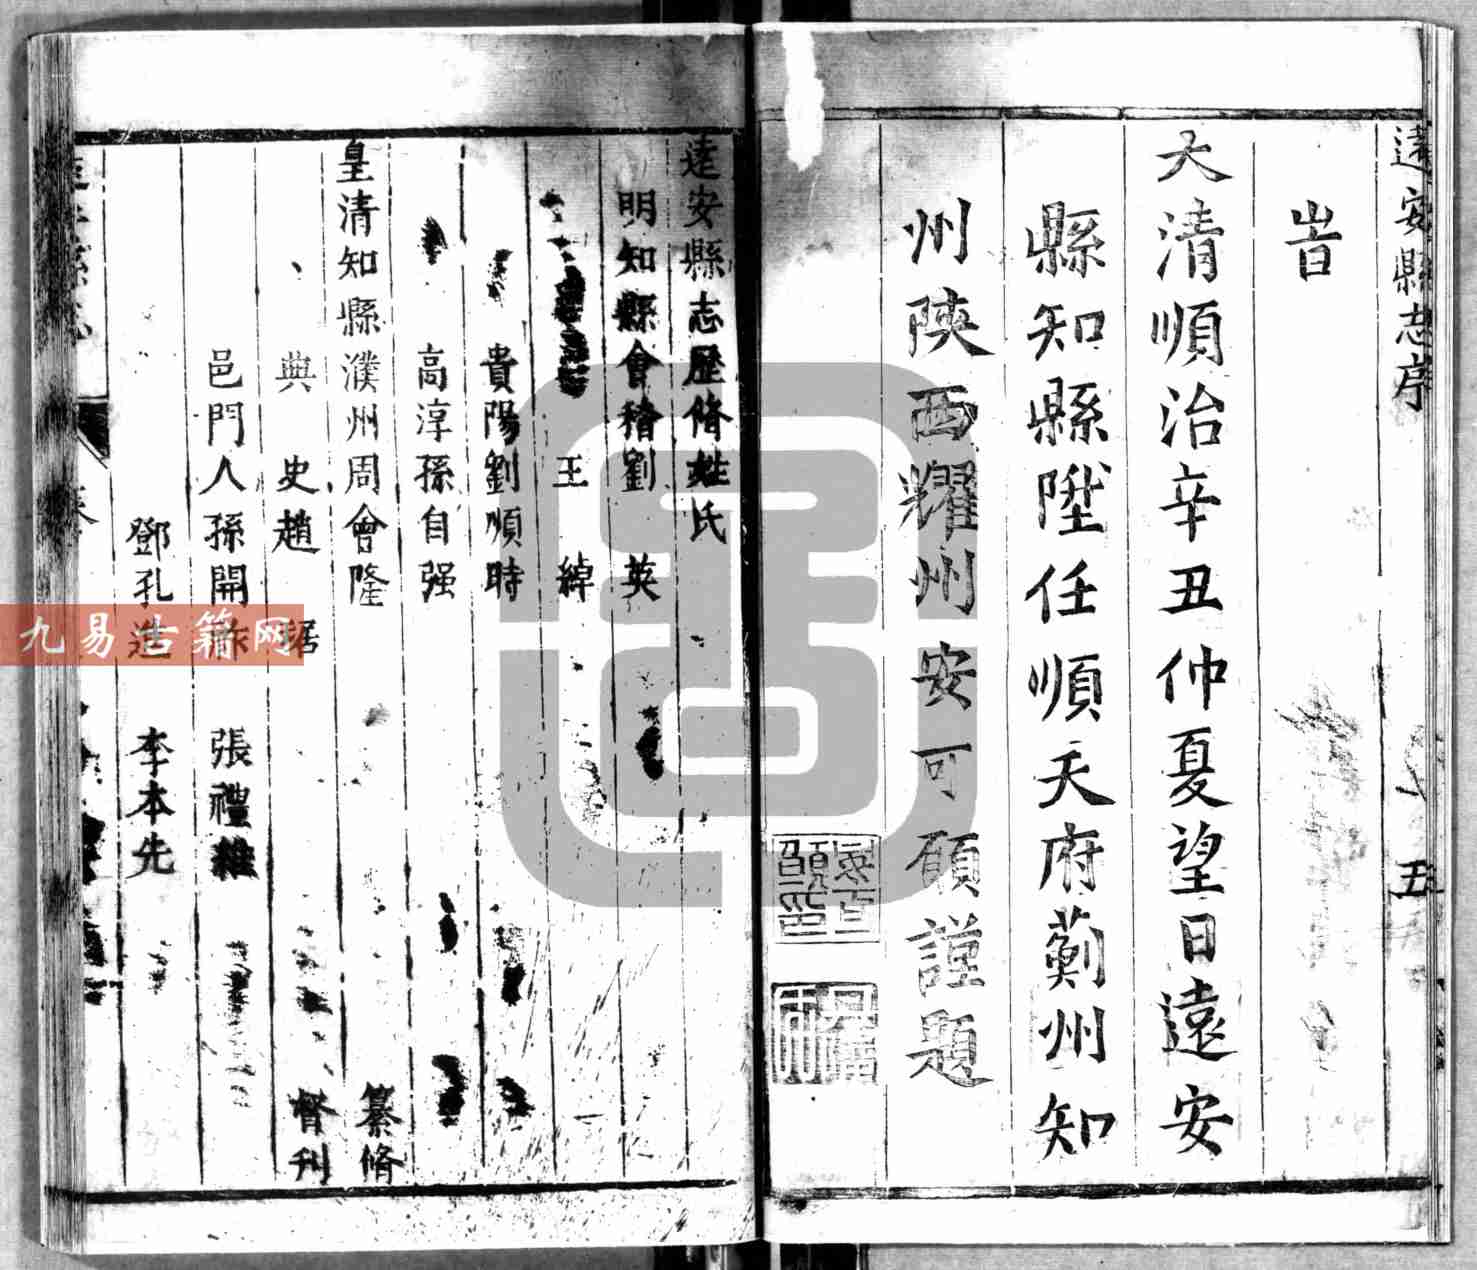 遠安縣志序
五
旹
大清順治辛丑仲夏望日遠安
縣知縣陞任順天府薊州知
州陝西耀州安可願謹題
遠安縣志歷脩姓氏
明知縣會稽劉 英
王 綽
貴陽劉順時
高淳孫自强
皇清知縣濮州周會隆 纂脩
典 史趙 督刊
邑門人孫開 張禮
鄧孔 李本先
九易古籍网